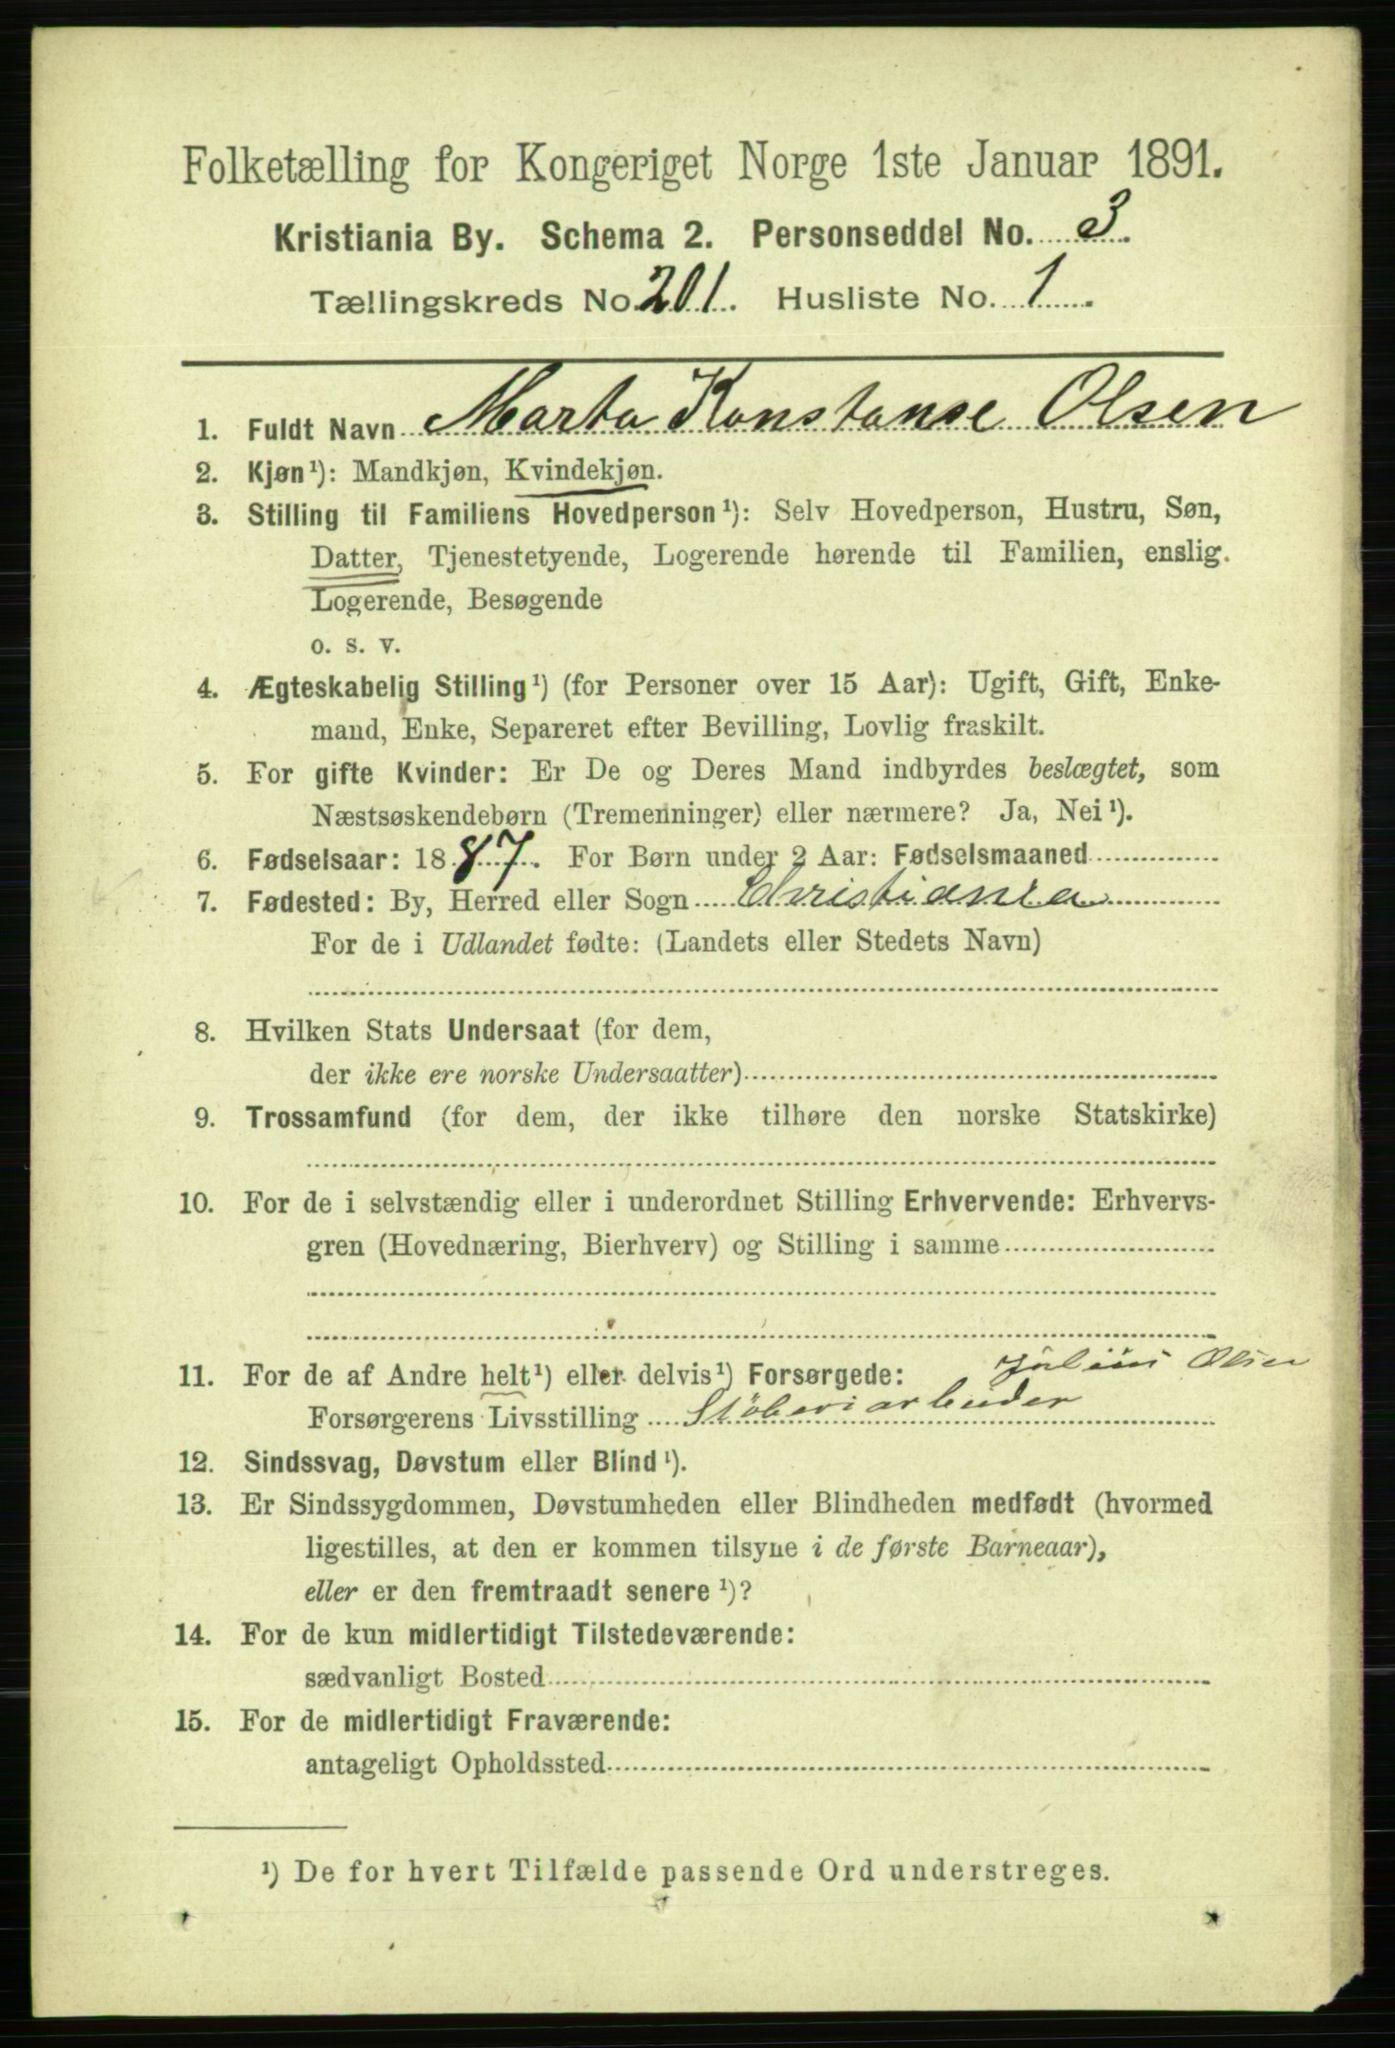 Folketælling for Kongeriget Norge 1ste Januar 1891.
Kristiania By. Schema 2. Personseddel No. 3.
Tællingskreds No. 201. Husliste No. 1.
1. Fuldt Navn Marta Konstanse Olsen
2. Kjøn¹): Mandkjøn, Kvindekjøn.
3. Stilling til Familiens Hovedperson¹): Selv Hovedperson, Hustru, Søn,
Datter, Tjenestetyende, Logerende hørende til Familien, enslig
Logerende, Besøgende
o. s. v.
4. Ægteskabelig Stilling¹) (for Personer over 15 Aar): Ugift, Gift, Enke-
mand, Enke, Separeret efter Bevilling, Lovlig fraskilt.
5. For gifte Kvinder: Er De og Deres Mand indbyrdes beslægtet, som
Næstsøskendebørn (Tremenninger) eller nærmere? Ja, Nei¹).
6. Fødselsaar: 1887. For Børn under 2 Aar: Fødselsmaaned
7. Fødested: By, Herred eller Sogn Christiania
For de i Udlandet fødte: (Landets eller Stedets Navn)
8. Hvilken Stats Undersaat (for dem,
der ikke ere norske Undersaatter)
9. Trossamfund (for dem, der ikke tilhøre den norske Statskirke)
10. For de i selvstændig eller i underordnet Stilling Erhvervende: Erhvervs-
gren (Hovednæring, Bierhverv) og Stilling i samme
11. For de af Andre helt¹) eller delvis¹) Forsørgede: Julius Olsen
Forsørgerens Livsstilling Støberiarbeider
12. Sindssvag, Døvstum eller Blind¹).
13. Er Sindssygdommen, Døvstumheden eller Blindheden medfødt (hvormed
ligestilles, at den er kommen tilsyne i de første Barneaar),
eller er den fremtraadt senere¹)?
14. For de kun midlertidigt Tilstedeværende:
sædvanligt Bosted
15. For de midlertidigt Fraværende:
antageligt Opholdssted
¹) De for hvert Tilfælde passende Ord understreges.